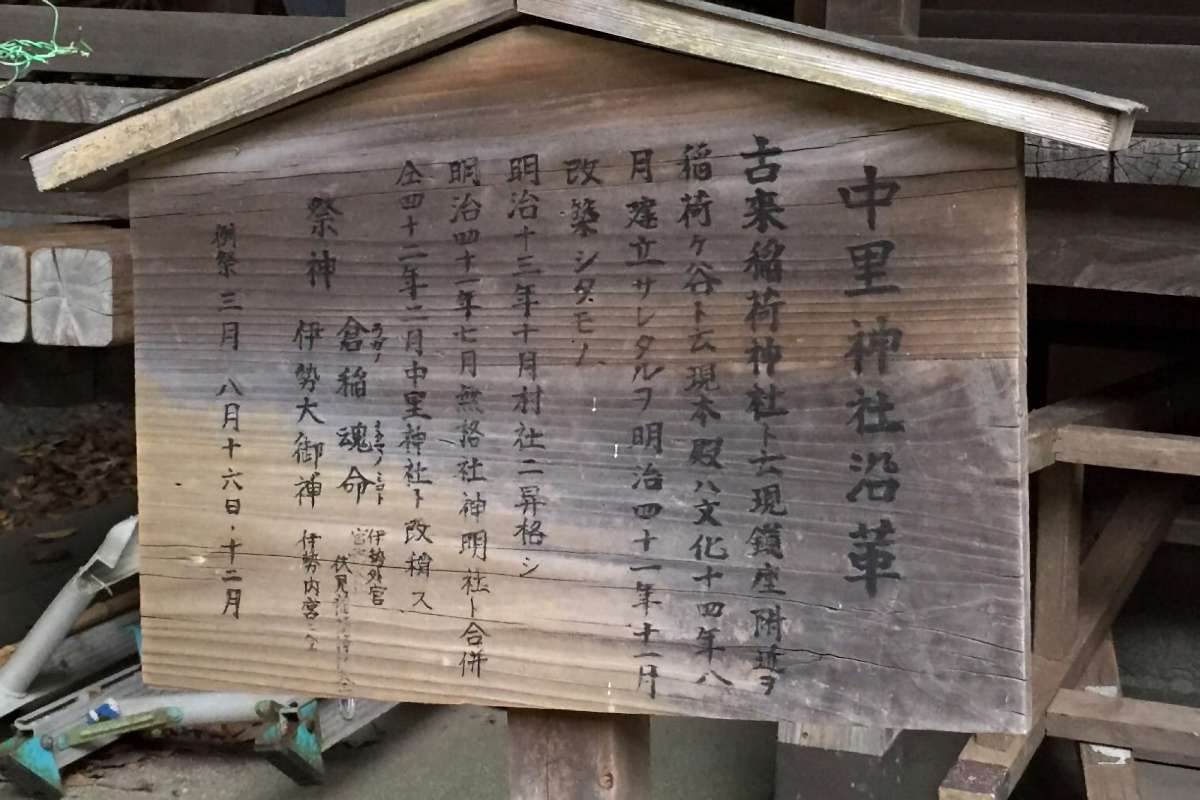 中里神社沿革
古来稲荷神社ト云現鎮座附近ヲ
稲荷ケ谷ト云現本殿ハ文化十四年八
月建立サレタルヲ明治四十一年十一月
改築シタモノ
明治十三年十月村社ニ昇格シ
明治四十一年七月無格社神明社ト合併
仝四十二年二月中里神社ト改称ス
祭神
倉稲魂命
伊勢外宮
伏見
伊勢大御神
伊勢内宮
例祭三月 八月十六日・十二月